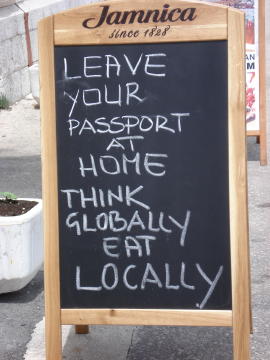 Jamnica
since 1828
LEAVE
YOUR
PASSPORT
AT
HOME
THINK
GLOBALLY
EAT
LOCALLY